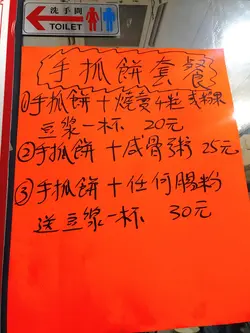 洗手間
TOILET
手抓餅套餐
①手抓餅+燒賣4粒或粿
豆漿一杯 20元
②手抓餅+咸骨粥 25元
③手抓餅+任何腸粉
送豆漿一杯 30元